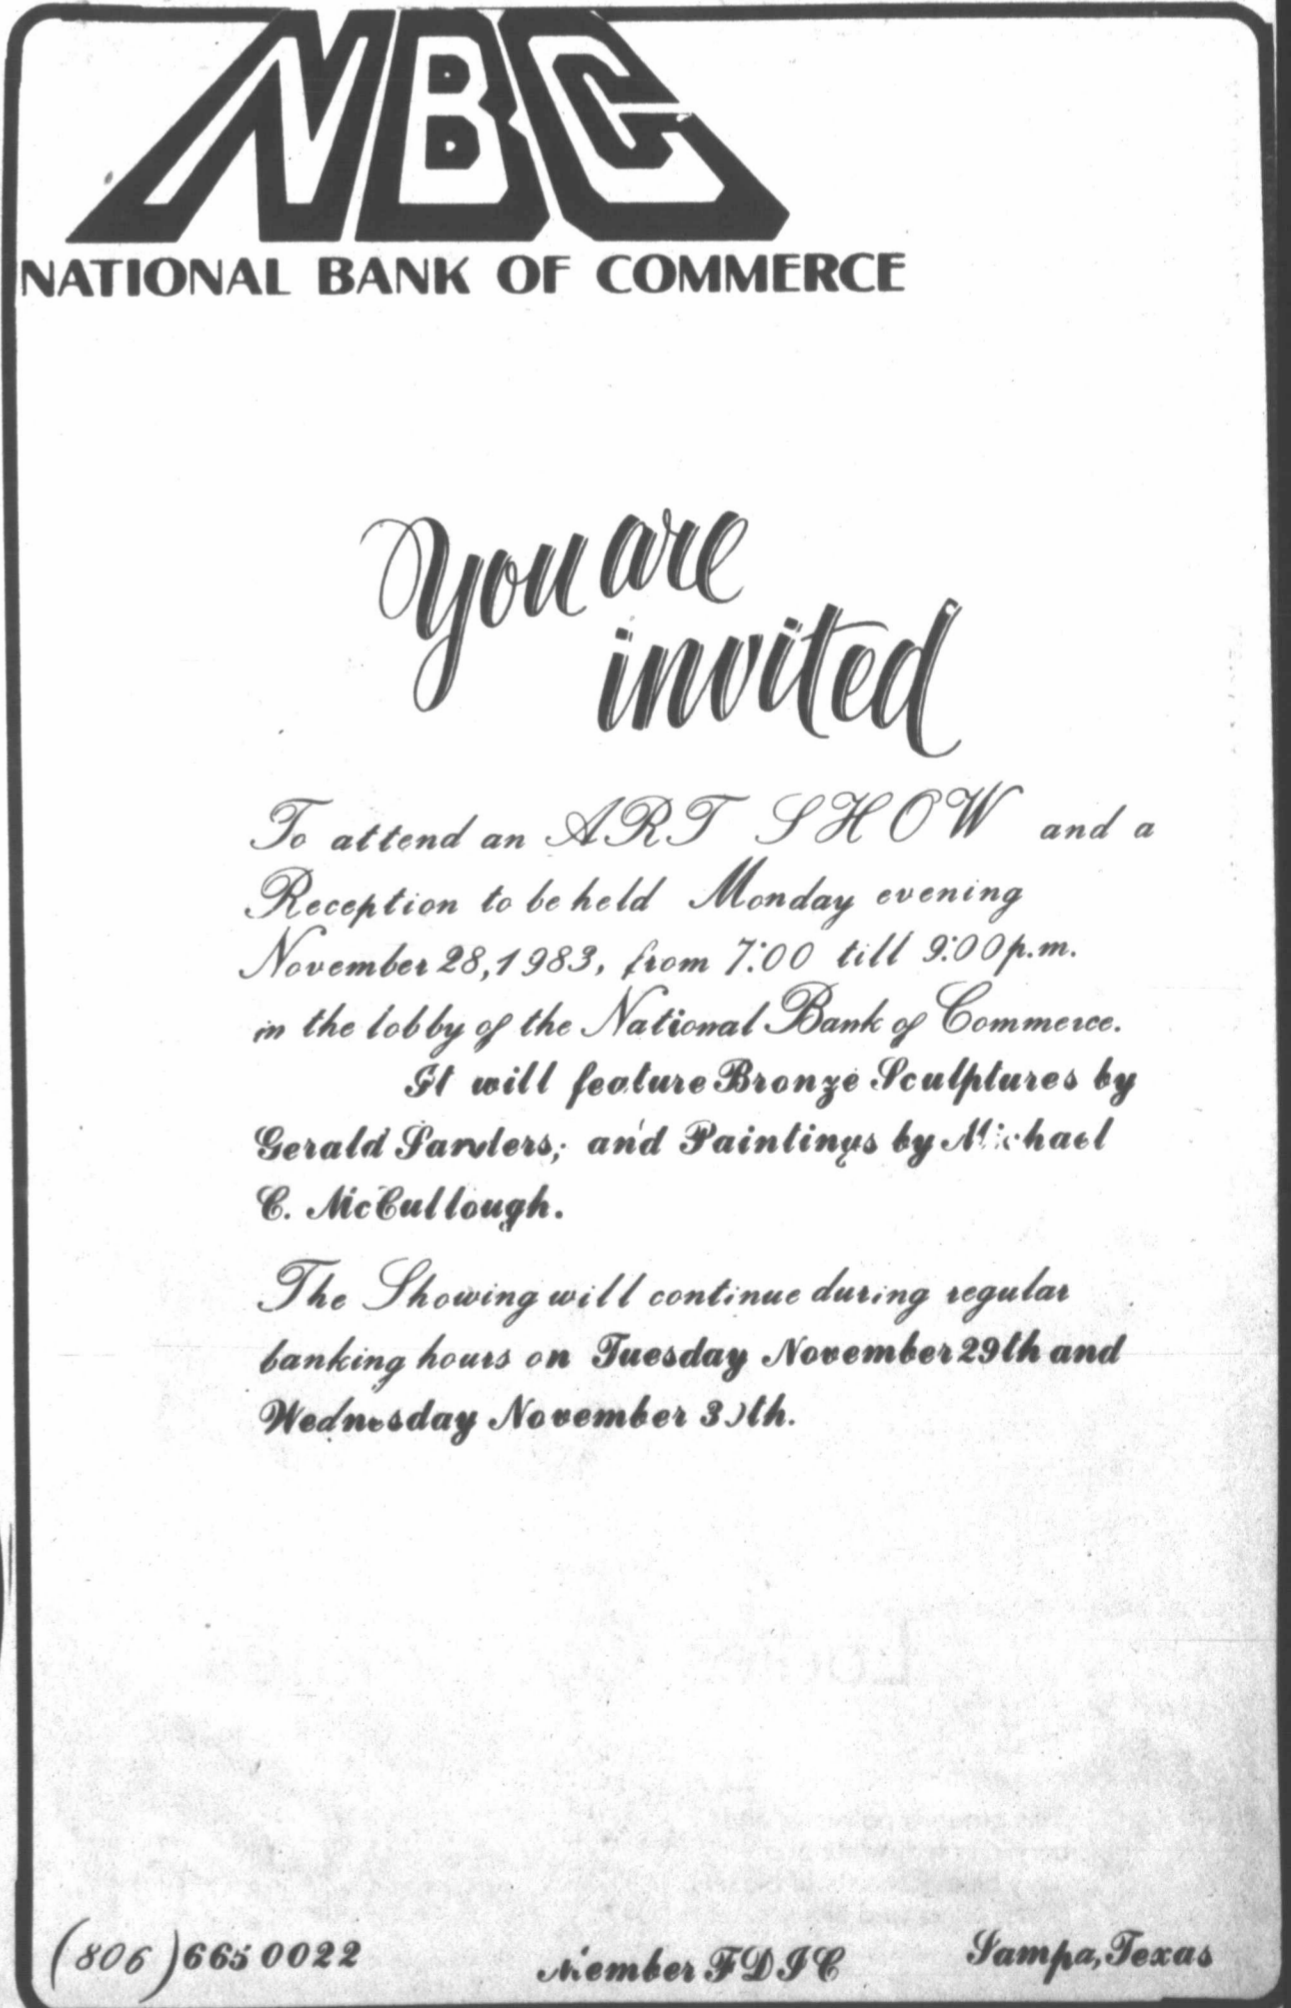 NBC
NATIONAL BANK OF COMMERCE
You are
invited
To attend an ART SHOW and a
Reception to be held Monday evening
November 28, 1983, from 7:00 till 9:00 p.m.
in the lobby of the National Bank of Commerce.
It will feature Bronze Sculptures by
Gerald Sanders; and Paintings by Michael
C. McCullough.
The Showing will continue during regular
banking hours on Tuesday November 29th and
Wednesday November 30th.
(806) 665 0022 Member FDIC Pampa, Texas